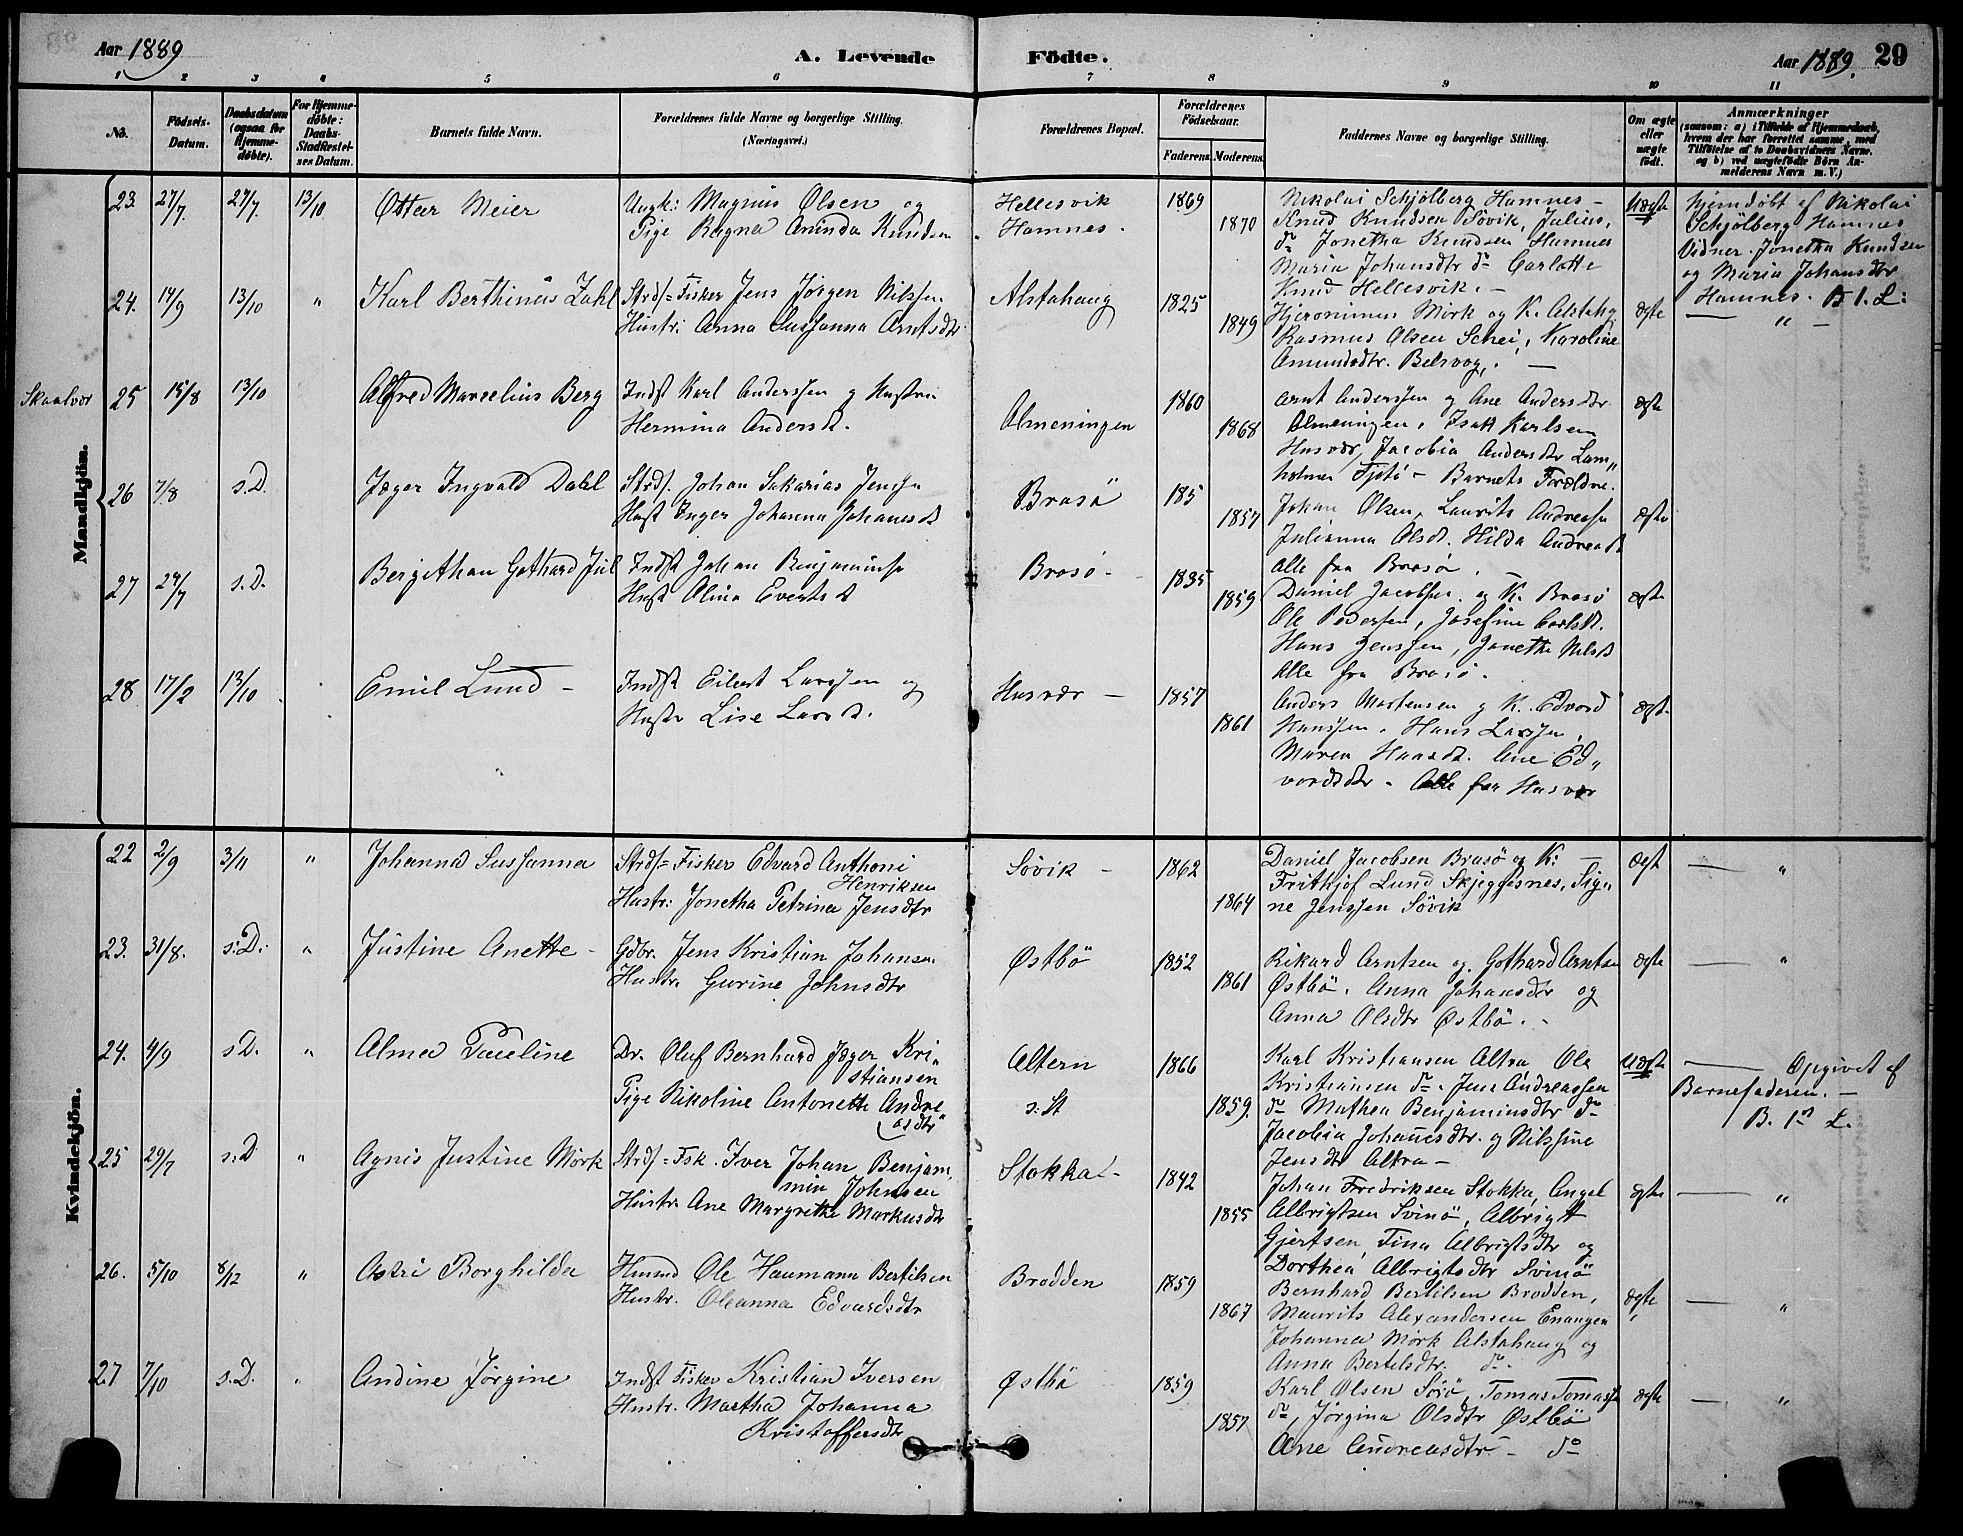 Aar 1889 A. Levende Födte. Aar 1889. 29
1 2 3 4 5 6 7 8 9 10 11
No. Födsels-Datum. Daabsdatum (ogsaa for Hjemmedöbte). For Hjemmedöbte: Daabs-Stadfæstelses Datum. Barnets fulde Navn. Forældrenes fulde Navne og borgerlige Stilling. (Næringsvei.) Forældrenes Bopæl. Forældrenes Födselsaar. Faderens Moderens Faddernes Navne og borgerlige Stilling. Om ægte eller uægte födt. Anmærkninger
(saasom: a) i Tilfælde af Hjemmedaab, hvem der har forrettet samme, med Tilföielse af to Daabsvidners Navne, og b) ved uægtefödte Börn Anmelderens Navn m. V.)
Mandkjön.
23. 27/7. 27/7. 13/10 Otteer Meier
Ungk: Magnus Olsen og
Pige Ragna Aminda Knudsen
Hellesvik
Hamnes.
1869
1870
Nikolai Schjölberg Hamnes -
Knud Knudsen Sövik, Julius,
do Jonetha Knudsen Hamnes
Maria Johansdtr do Carlotte
Knud Hellesvik. -
Uægte
hjemdöbt af Nikolai
Schjölberg Hamnes
Vidner: Jonetha Knudsen
og Maria Johansdtr
Hamnes. B 1. L:
24. 14/9 13/10 " Karl Berthinus Zahl
Strds= Fisker Jens Jörgen Nilssen
Hustr: Anna Sussanna Arntsdtr
Alstahaug
1825
1849
Hjeronimus Mörk og K. Alstahg
Rasmus Olsen Schei, Karoline
Amundsdtr. Belsvog, . —
ægte — " —
Skaalvær 25 15/8 13/10 Alfred Marselius Berg
Indst Karl Anderssen g Hustru
Hermina Andersd.
Almeningen
1860
1868
Arnt Anderssen g Ane Andersdtr
Almeningen, Isak Karlsen
Husvær, Jacobia Andersdtr Lam„
holmen Tjöti - Barnets Forældre.
ægte
26 7/8 s.D. Jæger Ingvald Dahl
Strds. Johan Sakarias Jenssen
Hust Inger Johanna Johanesd
Brasö
185
1857
Johan Olsen, Laurits Andreasen
Julianna Olsd. Hilda Andreasd
alle fra Brasö. —
ægte
27 24/7 s.D. Bergithon Gothard Juul
Indst Johan Benjaminsen
Hust Olina Evertsd
Brasö -
1835
1859
Daniel Jacobsen og K. Brasö
Ole Pedersen, Josefine Carlsd.
Hans Jenssen, Janetha Nilsd
alle fra Brasö.
ægte
28 17/2 13/10 Emil Lund -
Indst Eilert Larssen og
Hustr Lise Larsd.
Husvær —
1857
1861
Anders Mortensen g K. Edvard
Hanssen. Hans Larssen,
Maren Hansd. Ane Ed„
vardsdtr - Alle fra Husvær
ægt.
Kvindekjön.
22 2/9 3/11 " Johanna Sussanna
Strds= Fisker Edvard Anthoni
Henriksen
Hustr: Jonetha Petrina Jensdtr
Sövik -
1862
1864
Daniel Jacobsen Brasö og K: —
Frithjof Lund Skjeggesnes, Sig„
ne Jenssen Sövik
ægt — "
23. 31/8. s:D: " Justine Anette -
Gdbr. Jens Kristian Johansen
Hustr. Gurine Johnsdtr
Østbö
1852
1861
Rikard Arntsen og Gothard Arntsen
Østbö. Anna Johansdtr og
Anna Olsdtr Østbö. -
ægte — "
24. 4/9 s.D. " Alma Pauline
Dr. Oluf Bernhard Jæger Kri„
stiansen
Pige Nikoline Antonette Andre
asdtr
Altern
s: St
1866
1859.
Karl Kristiansen Altra, Ole
Kristiansen do. Jens Andreassen
do Mathea Benjaminsdtr do
Jacobia Johanesdtr. og Nilssine
Jensdtr Altra -
Uægte
— Opgivet af
Barnefaderen. -
B. 1. L.
25 29/7 s.D. " Agnis Justine Mörk
Strds= Fsk. Iver Johan Benjam„
min Johnsen
Hustr. Ane Margrethe Markusdtr
Stokka -
1842
1855
Johan Fredriksen Stokka, Angel
Albrigtsen Svinö, Albrigt
Gjertsen Tina Albrigtsdtr og
Dorthea Albrigtsdtr Svinö
ægte — "
26. 5/10 8/12 " Astri Borghilda
Husmd Ole Haumann Bertilsen
Hustr. Oleanna Edvardsdtr
Brodden
1859
1867
Bernhard Bertilsen Brodden,
Maurits Alexandersen Enangen
Johanna Mörk Alstahaug og
Anna Bertelsdtr. do.
ægte — "
27 7/10 s.D. Andine Jörgine
Indst Fisker Kristian Iversen
Hustr. Martha Johanna
Kristoffersdtr
Østbö
1859
1857
Karl Olsen Sörö, Tomas Tomass
do, Jörgina Olsdtr Østbö
Ane Andreasdtr - do
ægte — "